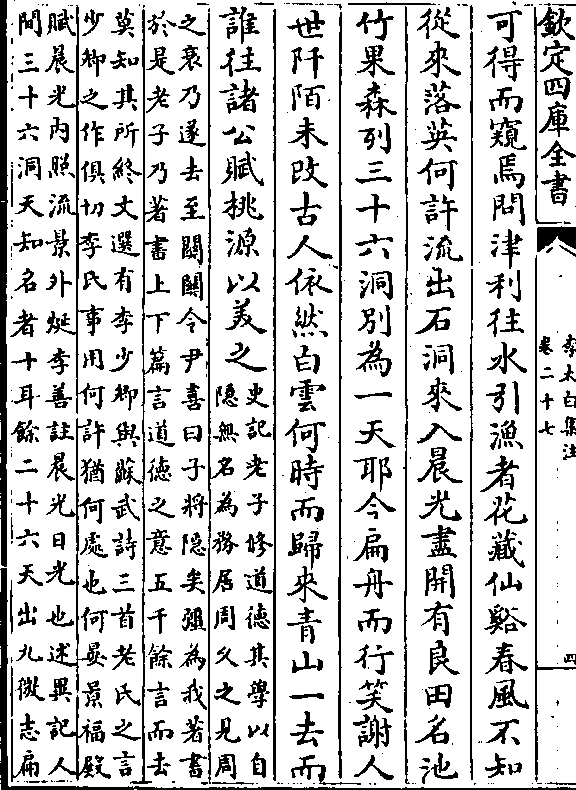 欽定四庫全書
李太白集注
卷二十七
四
可得而窺焉問津利往水引漁者花藏仙谿春風不知
從來落英何許流出石洞來入晨光盡開有良田名池
竹果森列三十六洞別為一天耶今扁舟而行笑謝人
世阡陌未改古人依然白雲何時而歸來青山一去而
誰往諸公賦桃源以美之
史記老子修道德其學以自
隱無名為務居周久之見周
之衰乃遂去至關關令尹喜曰子將隱矣彊為我著書
於是老子乃著書上下篇言道德之意五千餘言而去
莫知其所終文選有李少卿與蘇武詩三首老氏之言
少卿之作俱切李氏事用何許猶何處也何晏景福殿
賦晨光内照流景外烻李善註晨光日光也述異記人
間三十六洞天知名者十耳餘二十六天出九微志扁